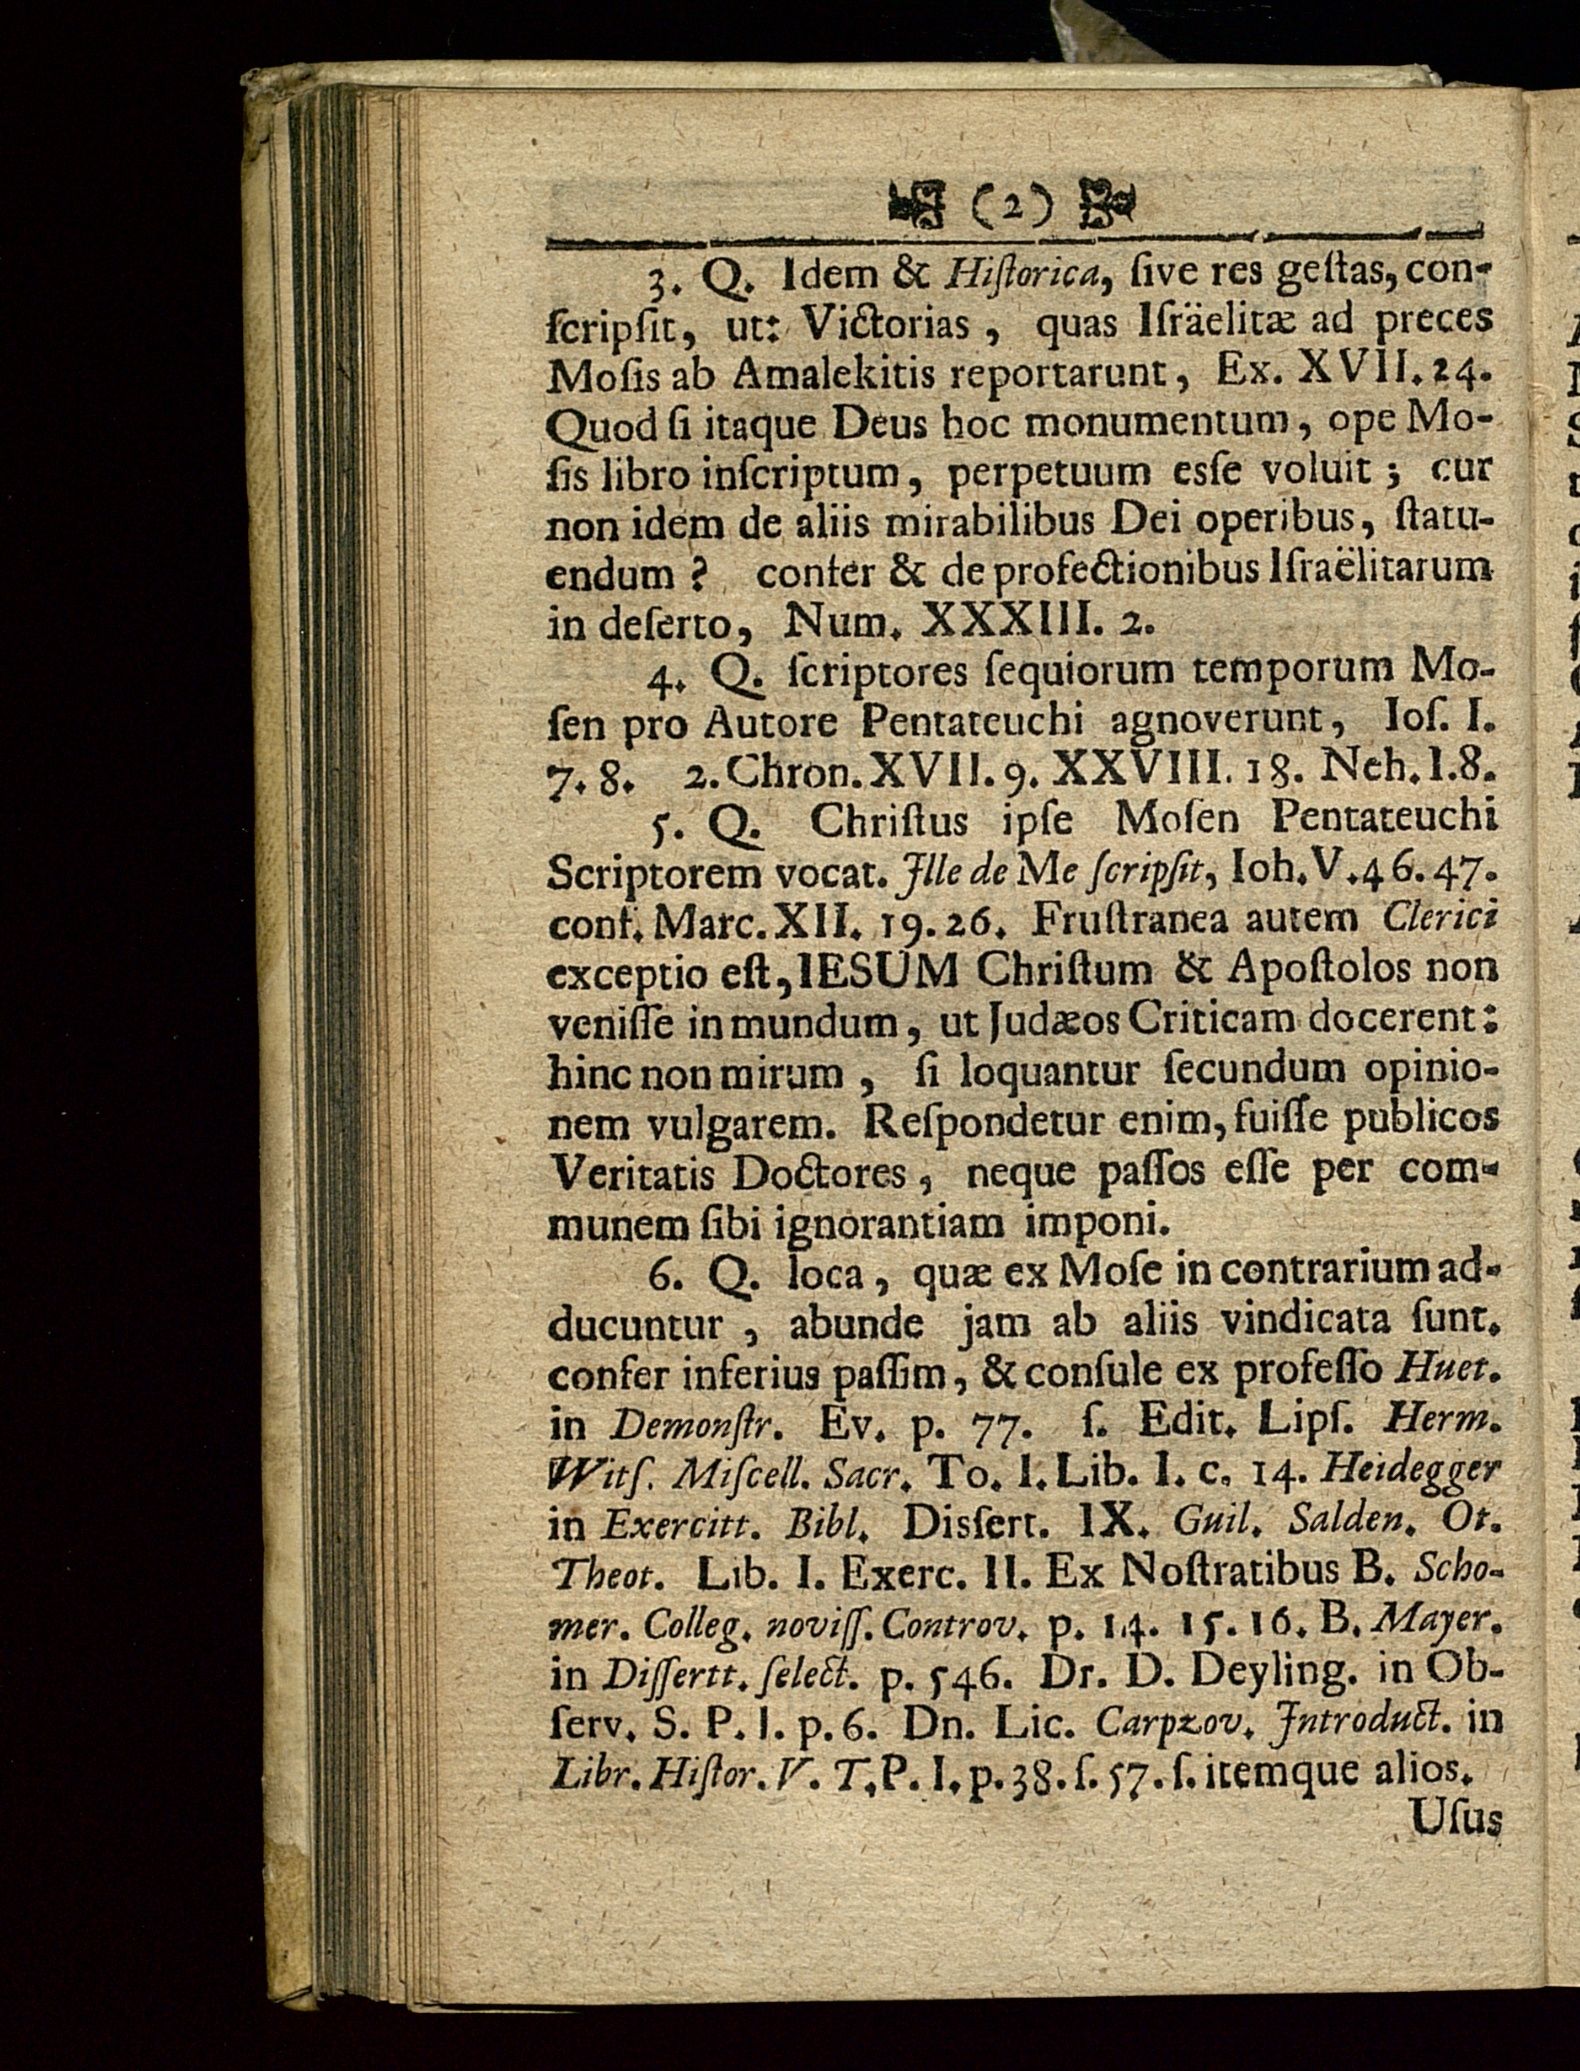 (2)
3. Q. Idem & Hiſtorica, ſive res geſtas, con-
ſcripſit, ut: Victorias, quas Iſräelitæ ad preces
Moſis ab Amalekitis reportarunt, Ex. XVII. 24.
Quod ſi itaque Deus hoc monumentum, ope Mo-
ſis libro inſcriptum, perpetuum esſe voluit; cur
non idem de aliis mirabilibus Dei operibus, ſtatu-
endum? confer & de profectionibus Iſraëlitarum
in deſerto, Num. XXXIII. 2.
4. Q. ſcriptores ſequiorum temporum Mo-
ſen pro Autore Pentateuchi agnoverunt, Ioſ. I.
7. 8. 2. Chron. XVII. 9. XXVIII. 18. Neh. I. 8.
5. Q. Chriſtus ipſe Moſen Pentateuchi
Scriptorem vocat. Jlle de Me ſcripſit, Ioh. V. 46. 47.
conf. Marc. XII. 19. 26. Fruſtranea autem Clerici
exceptio eſt, IESUM Chriſtum & Apoſtolos non
veniſſe in mundum, ut Judæos Criticam docerent:
hinc non mirum, ſi loquantur ſecundum opinio-
nem vulgarem. Reſpondetur enim, fuiſſe publicos
Veritatis Doctores, neque paſſos eſſe per com-
munem ſibi ignorantiam imponi.
6. Q. loca, quæ ex Moſe in contrarium ad-
ducuntur, abunde jam ab aliis vindicata ſunt.
confer inferius paſſim, & conſule ex profeſſo Huet.
in Demonſtr. Ev. p. 77. ſ. Edit. Lipſ. Herm.
Witſ. Miſcell. Sacr. To. I. Lib. I. c. 14. Heidegger
in Exercitt. Bibl. Disſert. IX. Guil. Salden. Ot.
Theot. Lib. I. Exerc. II. Ex Noſtratibus B. Scho-
mer. Colleg. noviſſ. Controv. p. 14. 15. 16. B. Mayer.
in Diſſertt. ſelect. p. 546. Dr. D. Deyling. in Ob-
ſerv. S. P. I. p. 6. Dn. Lic. Carpzov. Jntroduct. in
Libr. Hiſtor. V. T. P. I. p. 38. ſ. 57. ſ. itemque alios.
Uſus